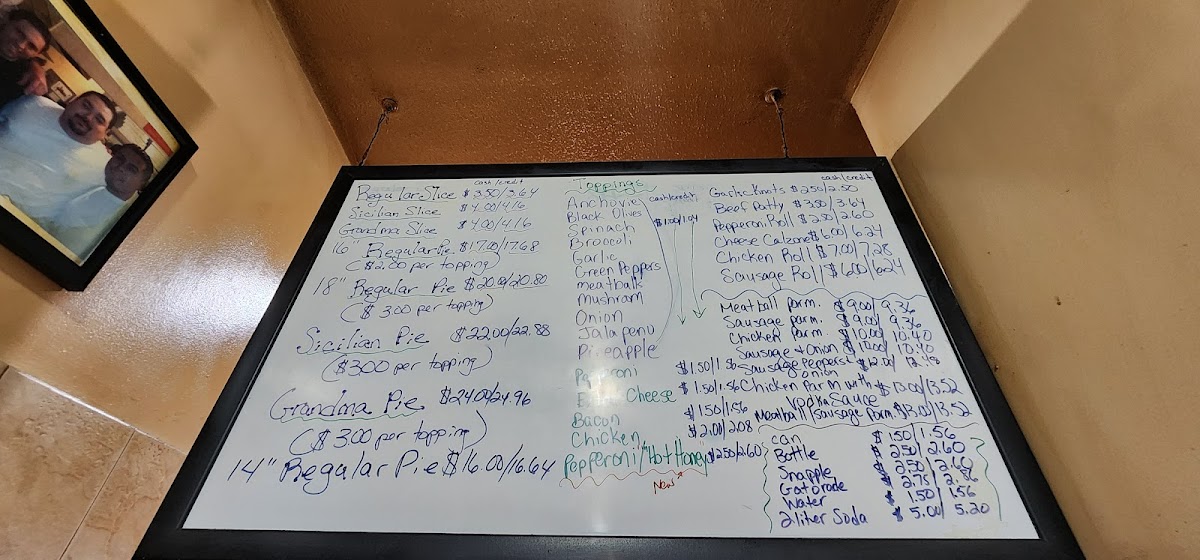 cash/credit
Regular Slice $3.50/3.64
Sicilian Slice $4.00/4.16
Grandma Slice $4.00/4.16
16" Regular Pie $17.00/17.68
($2.00 per topping)
18" Regular Pie $20.00/20.80
($3.00 per topping)
Sicilian Pie $22.00/22.88
($3.00 per topping)
Grandma Pie $24.00/24.96
($3.00 per topping)
14" Regular Pie $16.00/16.64
Toppings
cash/credit
Anchovies
Black Olives $1.00/1.04
Spinach
Broccoli
Garlic
Green Peppers
meatballs
Mushroom
Onion
Jalapeno
Pineapple
Pepperoni $1.50/1.56
Extra Cheese $1.50/1.56
Bacon $1.50/1.56
Chicken $2.00/2.08
Pepperoni/"Hot Honey" $2.50/2.60
New
cash/credit
Garlic Knots $2.50/2.50
Beef Patty $3.50/3.64
Pepperoni Roll $2.50/2.60
Cheese Calzone $6.00/6.24
Chicken Roll $7.00/7.28
Sausage Roll $6.00/6.24
Meatball parm. $9.00/9.36
Sausage parm. $9.00/9.36
Chicken parm. $10.00/10.40
Sausage + Onion 10.40
Sausage Peppers + $12.00/12.48
onion
Chicken Parm with $13.00/13.52
Vodka Sauce
Meatball/Sausage Parm. $13.00/13.52
can $1.50/1.56
Bottle $2.50/2.60
Snapple $2.50/2.60
Gatorade $2.75/2.86
Water $1.50/1.56
2 liter Soda $5.00/5.20